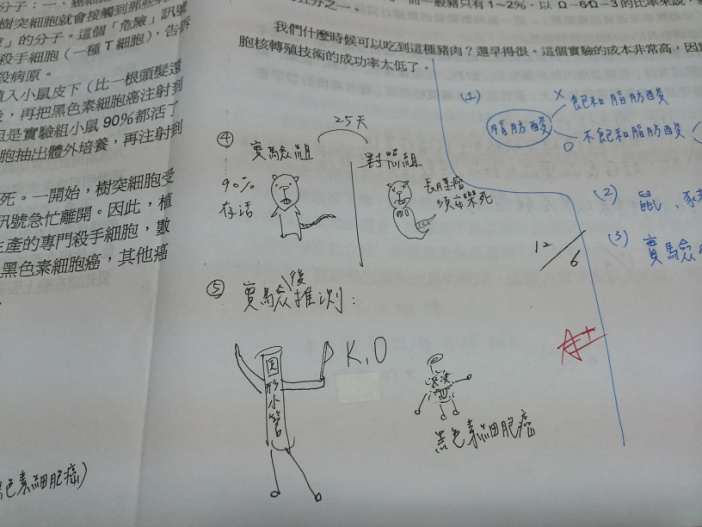 分子：一、
樹突細胞就會接觸到那些
」的分子。這個「危險」訊號
殺手細胞（一種T細胞），告訴
殺病原。
植入小鼠皮下（比一根頭髮還
，再把黑色素細胞癌注射到
但是實驗組小鼠90%都活了
胞抽出體外培養，再注射到
死。一開始，樹突細胞受
訊號急忙離開。因此，植
生產的專門殺手細胞，數
黑色素細胞癌，其他癌
色素細胞癌）
而一般豬只有1~2%。以Ω-6Ω-3的比率來說，
我們什麼時候可以吃到這種豬肉？還早得很。這個實驗的成本非常高，因
胞核轉殖技術的成功率太低了。
④ 實驗組
25天
對照組
90%
存活
長腫瘤
安樂死
⑤ 實驗後推測：
圓形小管
K.O
黑色素細胞癌
(1)
脂肪酸
X 飽和脂肪酸
O 不飽和脂肪酸
(2) 鼠、豬
(3) 實驗
12/6
A++